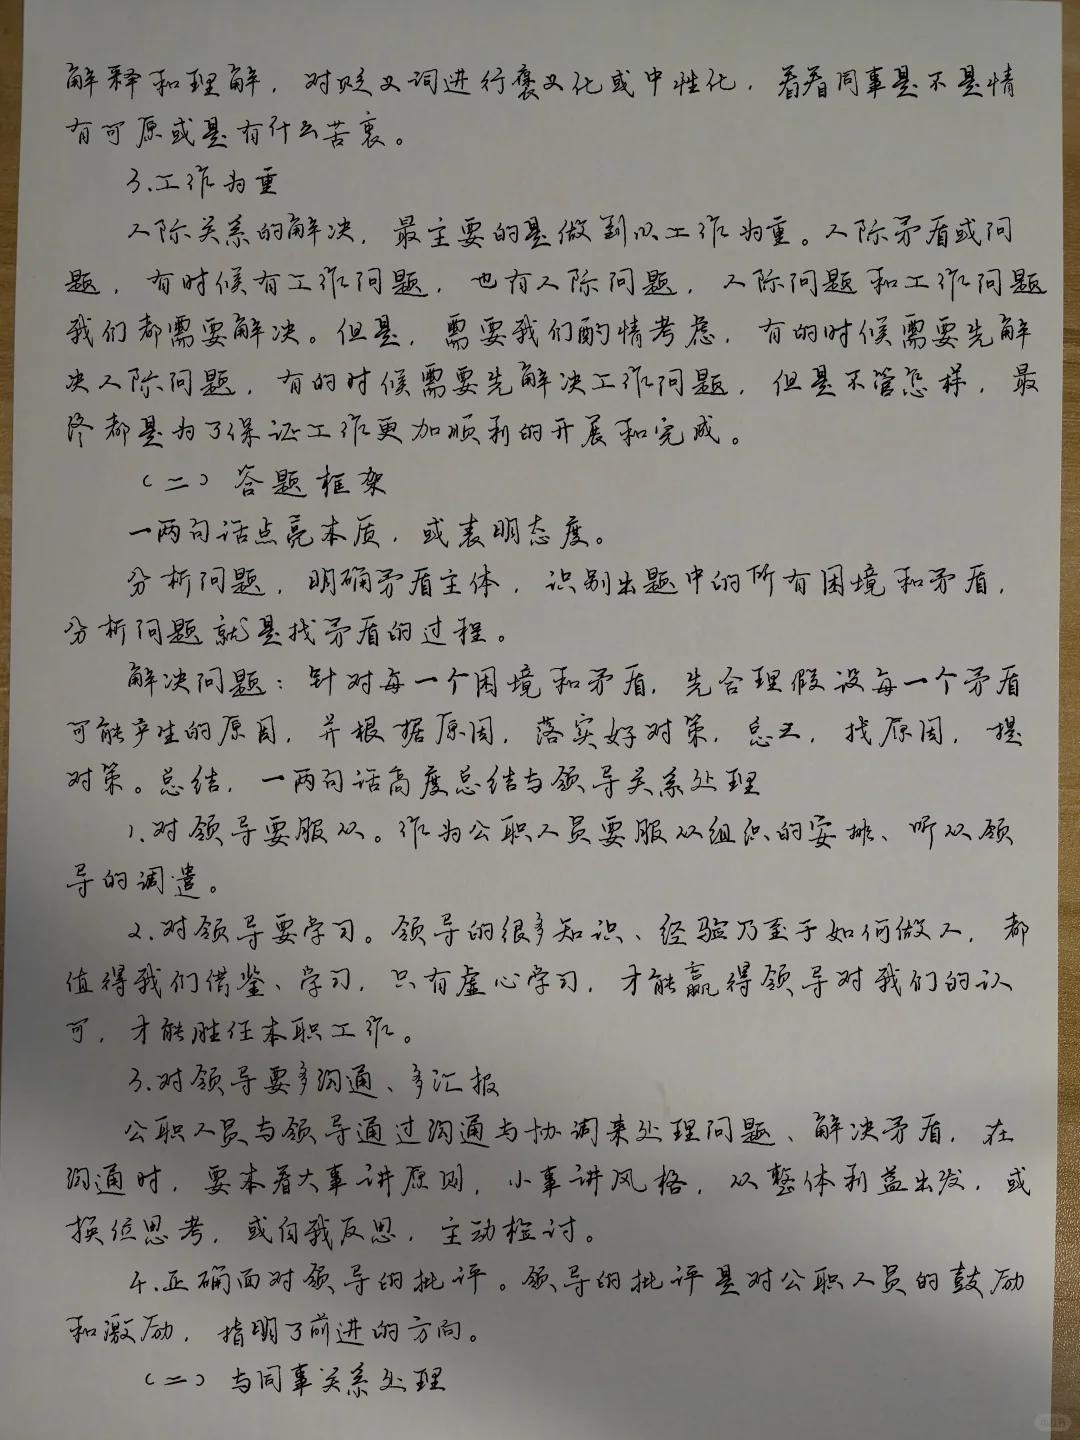 解释和理解，对贬义词进行褒义化或中性化，看看同事是不是情
有可原或是有什么苦衷。
3.工作为重
人际关系的解决，最主要的是做到以工作为重。人际矛盾或问
题，有时候有工作问题，也有人际问题，人际问题和工作问题
我们都需要解决。但是，需要我们酌情考虑，有的时候需要先解
决人际问题，有的时候需要先解决工作问题，但是不管怎样，最
终都是为了保证工作更加顺利的开展和完成。
（二）答题框架
一两句话点亮本质，或表明态度。
分析问题，明确矛盾主体，识别出题中的所有困境和矛盾，
分析问题就是找矛盾的过程。
解决问题：针对每一个困境和矛盾，先合理假设每一个矛盾
可能产生的原因，并根据原因，落实好对策，总之，找原因，提
对策。总结，一两句话高度总结与领导关系处理
1.对领导要服从。作为公职人员要服从组织的安排、听从领
导的调遣。
2.对领导要学习。领导的很多知识、经验乃至于如何做人，都
值得我们借鉴、学习，只有虚心学习，才能赢得领导对我们的认
可，才能胜任本职工作。
3.对领导要多沟通、多汇报
公职人员与领导通过沟通与协调来处理问题、解决矛盾，在
沟通时，要本着大事讲原则，小事讲风格，从整体利益出发，或
换位思考，或自我反思，主动检讨。
4.正确面对领导的批评。领导的批评是对公职人员的鼓励
和激励，指明了前进的方向。
（二）与同事关系处理
小红书